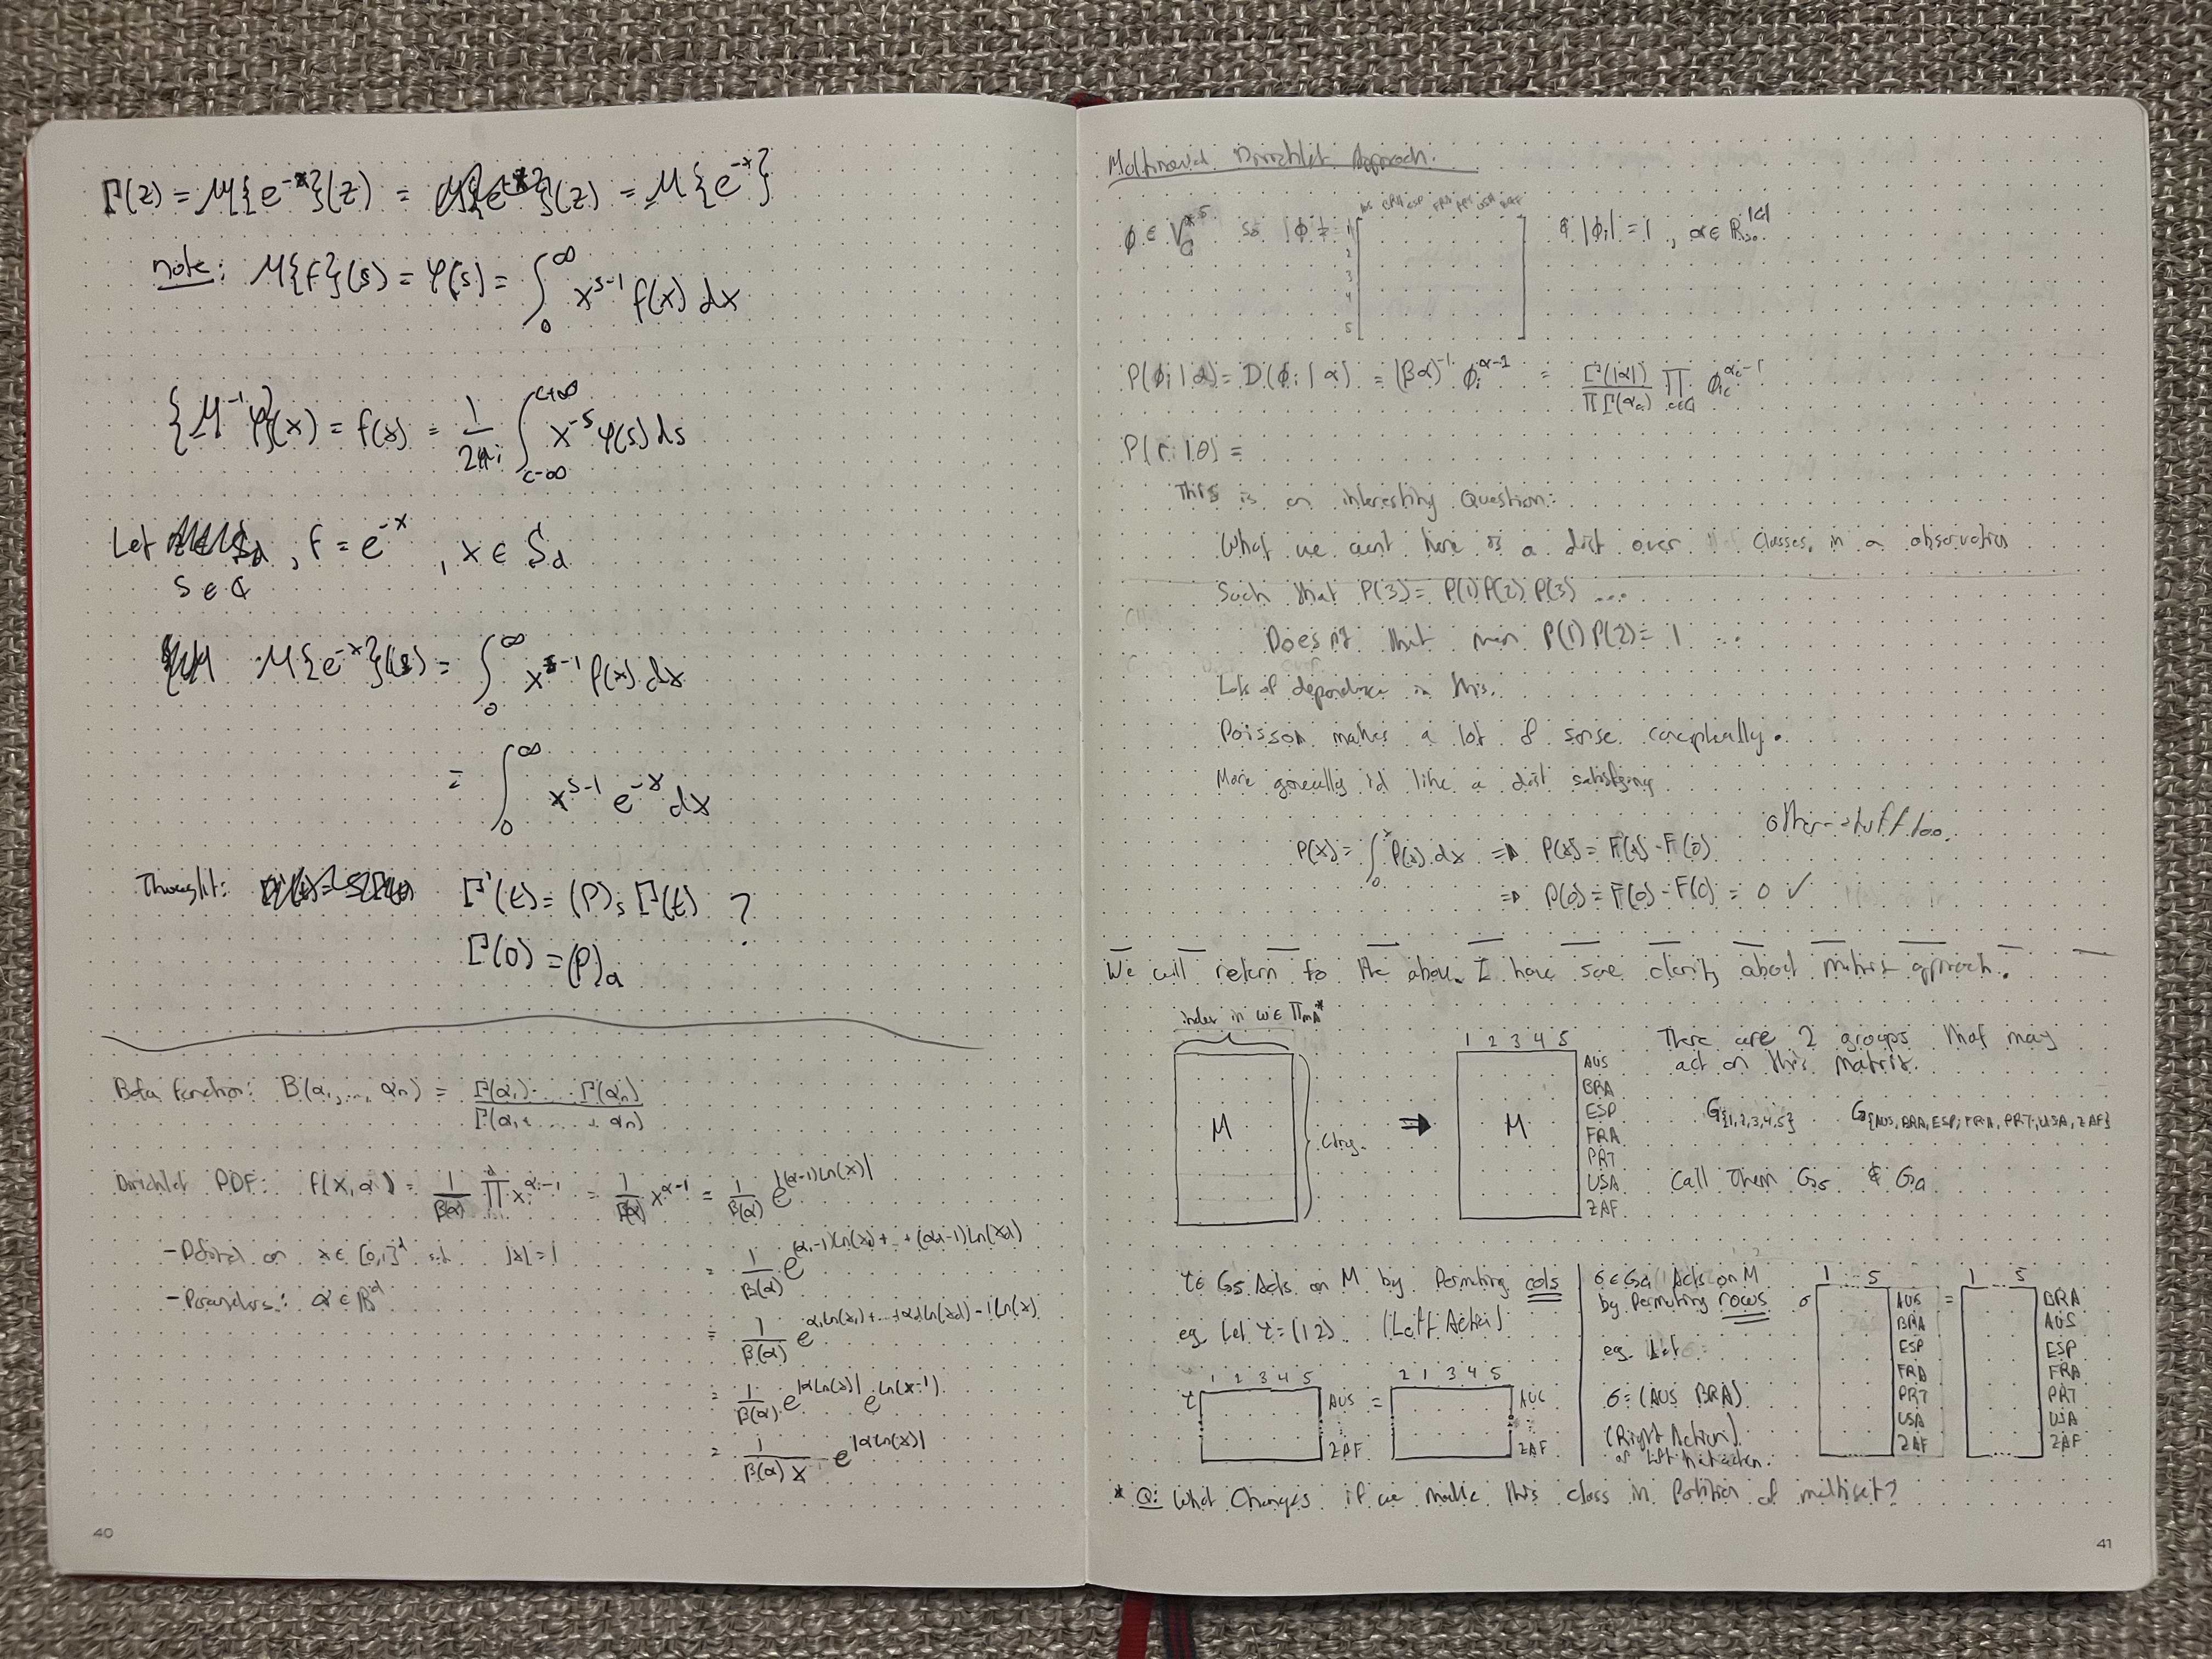 Γ(z) = M{e^-x}(z) = M{e^-x}
note: M{f}(s) = φ(s) = ∫_0^∞ x^{s-1} f(x) dx
{M^-1 φ}(x) = f(x) = 1/2πi ∫_{c-i∞}^{c+i∞} x^-s φ(s) ds
Let , f = e^-x , x ∈
s ∈
M{e^-x}(s) = ∫_0^∞ x^{s-1} f(x) dx
= ∫_0^∞ x^{s-1} e^-x dx
Thought: Γ'(t) = (P)_s Γ(t) ?
Γ(0) = (P)_a
Beta function: B(α_1, ..., α_n) = Γ(α_1) ... Γ(α_n) / Γ(α_1 + ... + α_n)
Dirichlet PDF: f(x, α) = 1/B(α) ∏ x_i^{α_i-1} = 1/B(α) x^{α-1} = 1/B(α) e^{|(α-1)ln(x)|}
- Defined on x ∈ [0,1]^d s.t. |x| = 1
- Parameters: α ∈ R^d
= 1/B(α) e^{(α_1-1)ln(x_1) + ... + (α_d-1)ln(x_d)}
= 1/B(α) e^{α_1 ln(x_1) + ... + α_d ln(x_d) - 1 ln(x)}
= 1/B(α) e^{|α ln(x)|} e^{ln(x^-1)}
= 1/B(α) x^-1 e^{|α ln(x)|}
40
Multinomial Dirichlet Approach.
1
2
3
4
5
& |φ_i| = 1, α ∈ R_{>0}^{|G|}
P(φ_i | α) = D(φ_i | α) = (Bα)^-1 φ_i^{α-1} = Γ(|α|) / ∏ Γ(α_c) ∏_{c∈G} φ_{ic}^{α_c-1}
P(r_i | θ) =
This is an interesting question:
What we want here is a dist over classes, in a observation
Such that P(3) = P(1)P(2)P(3) ...
Does that mean P(1)P(2) = 1 ...
Lots of dependence in this.
Poisson makes a lot of sense conceptually.
More generally id like a dist satisfying
other stuff too.
P(x) = ∫_0^x P(z) dx ⇒ P(x) = F(x) - F(0)
⇒ P(0) = F(0) - F(0) = 0 ✓
We will return to the above. I have some clarity about matrix approach.
index in
M
Ctry.
⇒
1 2 3 4 5
M
AUS
BRA
ESP
FRA
PRT
USA
ZAF
There are 2 groups that may
act on this matrix.
G{1,2,3,4,5} G{AUS,BRA,ESP,FRA,PRT,USA,ZAF}
Call them G_5 & G_a
τ ∈ G_5 Acts on M by Permuting cols
eg let τ = (12). (Left Action)
τ 1 2 3 4 5 AUS ZAF = 2 1 3 4 5 AUS ZAF
σ ∈ G_a Acts on M
by Permuting rows
eg let σ =
σ = (AUS BRA)
(Right Action)
σ 1 ... 5
AUS
BRA
ESP
FRA
PRT
USA
ZAF
=
1 ... 5
BRA
AUS
ESP
FRA
PRT
USA
ZAF
* Q: What Changes if we make this class in Partition of multiset?
41